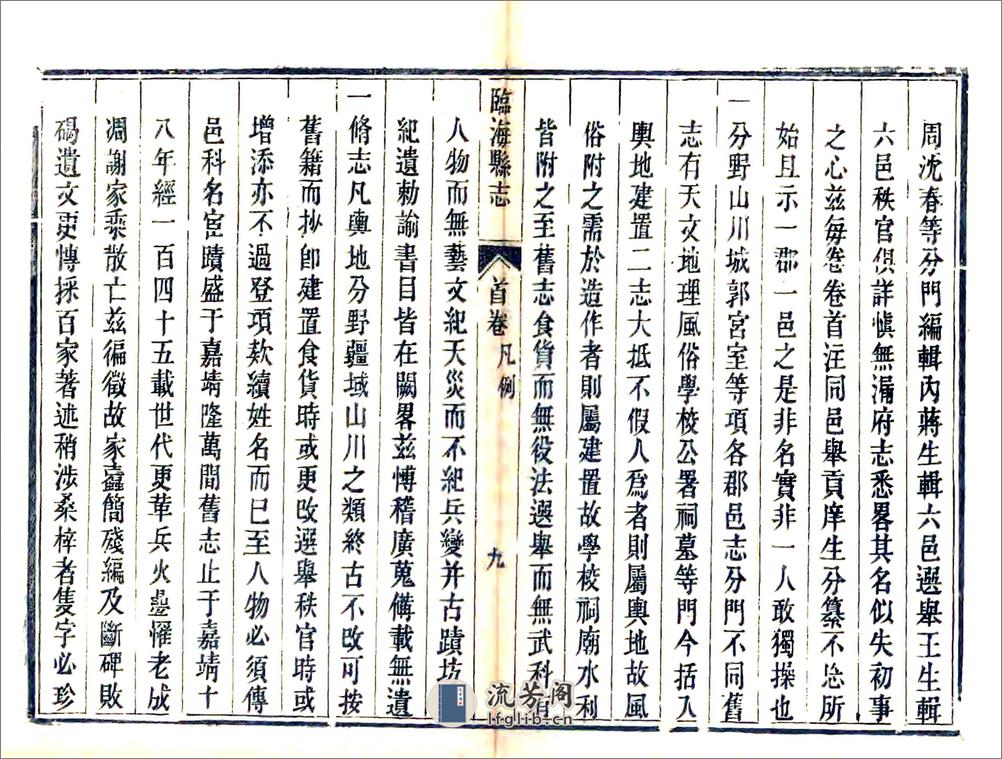 周沈春等分門編輯內蔣生輯六邑選舉王生輯
六邑秩官俱詳慎無漏府志悉畧其名似失初事
之心茲每卷卷首注同邑舉貢庠生分纂不忘所
始且示一郡一邑之是非名實非一人敢獨操也
一分野山川城郭宮室等項各郡邑志分門不同舊
志有天文地理風俗學校公署祠墓等門今括入
輿地建置二志大抵不假人爲者則屬輿地故風
俗附之需於造作者則屬建置故學校祠廟水利
皆附之至舊志食貨而無役法選舉而無武科有
臨海縣志 首卷 凡例 九
人物而無藝文紀天災而不紀兵變并古蹟坊
紀遺勅諭書目皆在闕畧茲愽稽廣蒐備載無遺
一脩志凡輿地分野疆域山川之類終古不改可按
舊籍而抄即建置食貨時或更改選舉秩官時或
增添亦不過登項欵續姓名而已至人物必須傳
邑科名宦蹟盛于嘉靖隆萬間舊志止于嘉靖十
八年經一百四十五載世代更革兵火疊罹老成
凋謝家乘散亡茲徧徵故家蠧簡殘編及斷碑敗
碣遺文更愽採百家著述稍涉桑梓者隻字必珍
流芳阁
lfglib.cn